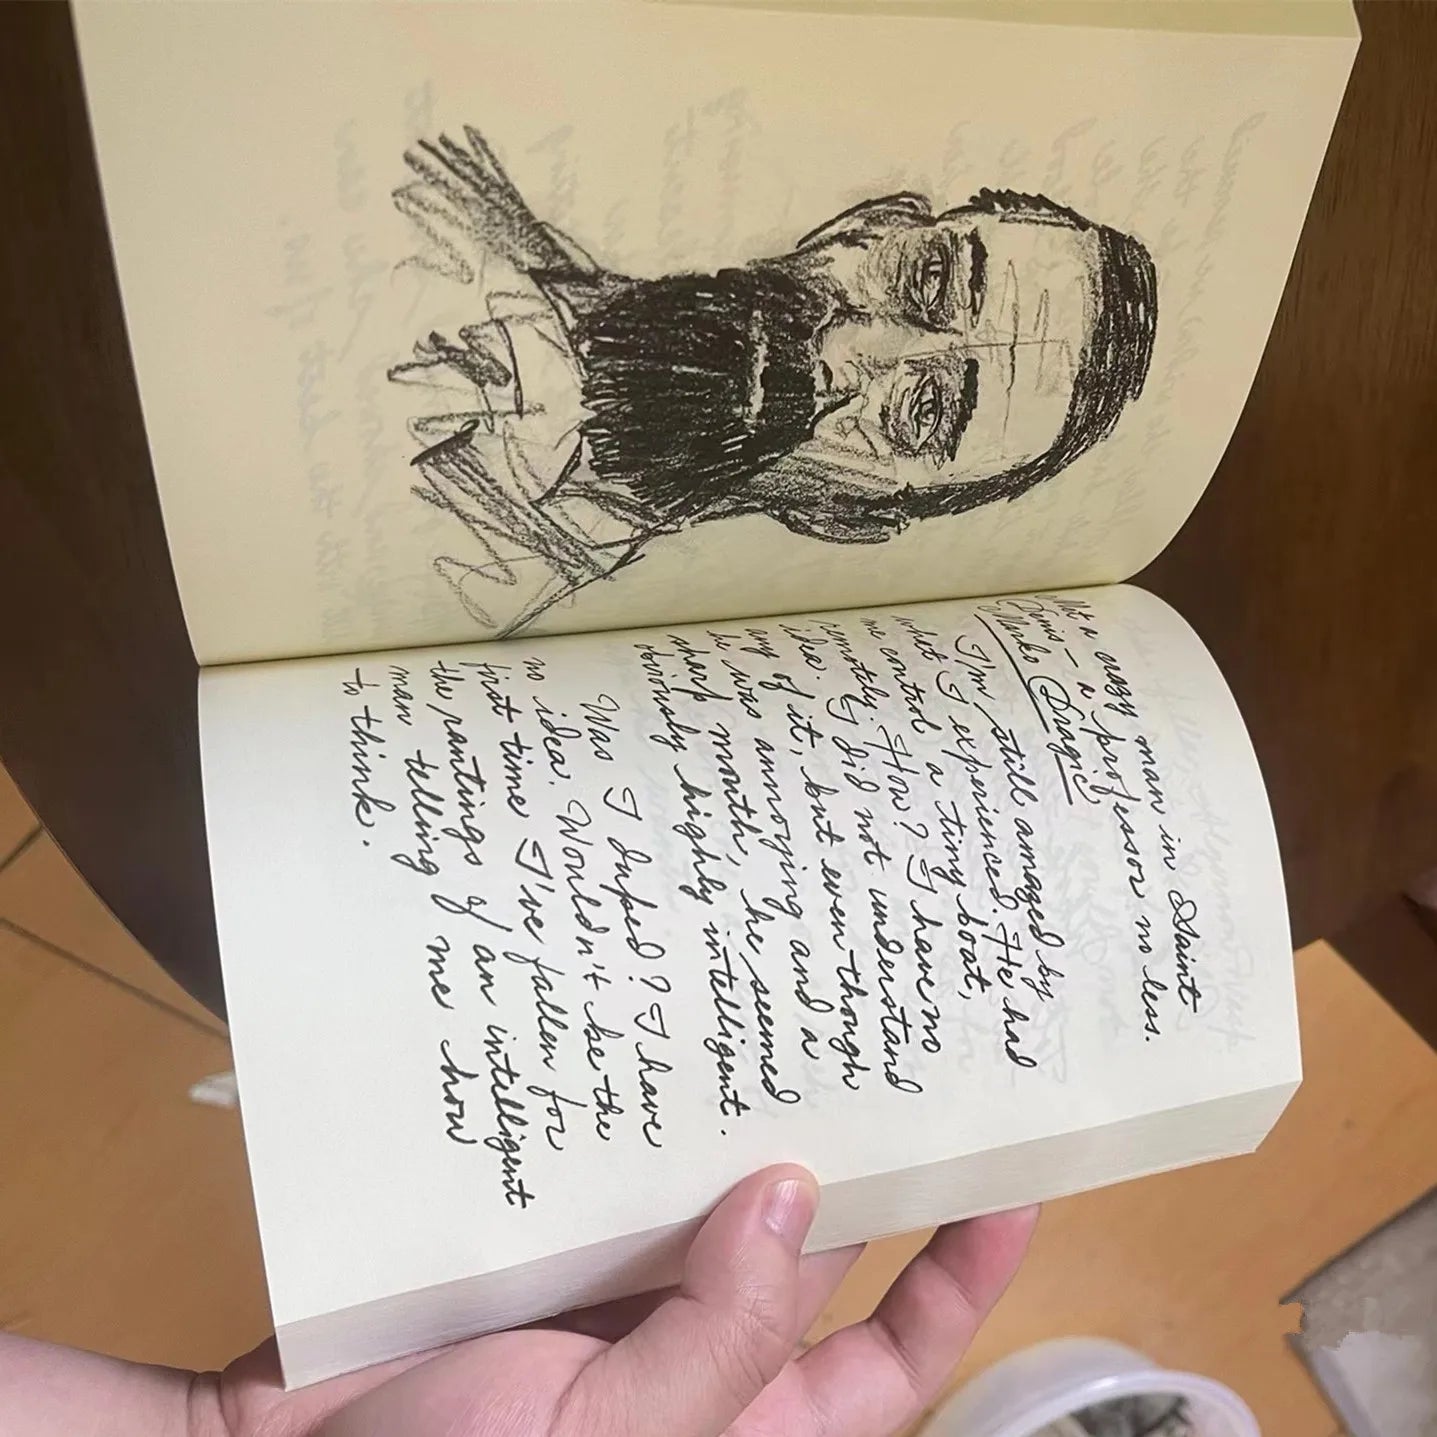 Met a crazy man in Saint
Denis — a professor no less.
Marko Dragic
I'm still amazed by
what I experienced. He had
me control a tiny boat,
remotely. How? I have no
idea. I did not understand
any of it, but even though
he was annoying and a
sharp mouth, he seemed
obviously highly intelligent.
Was I duped? I have
no idea. Wouldn't be the
first time I've fallen for
the rantings of an intelligent
man telling me how
to think.